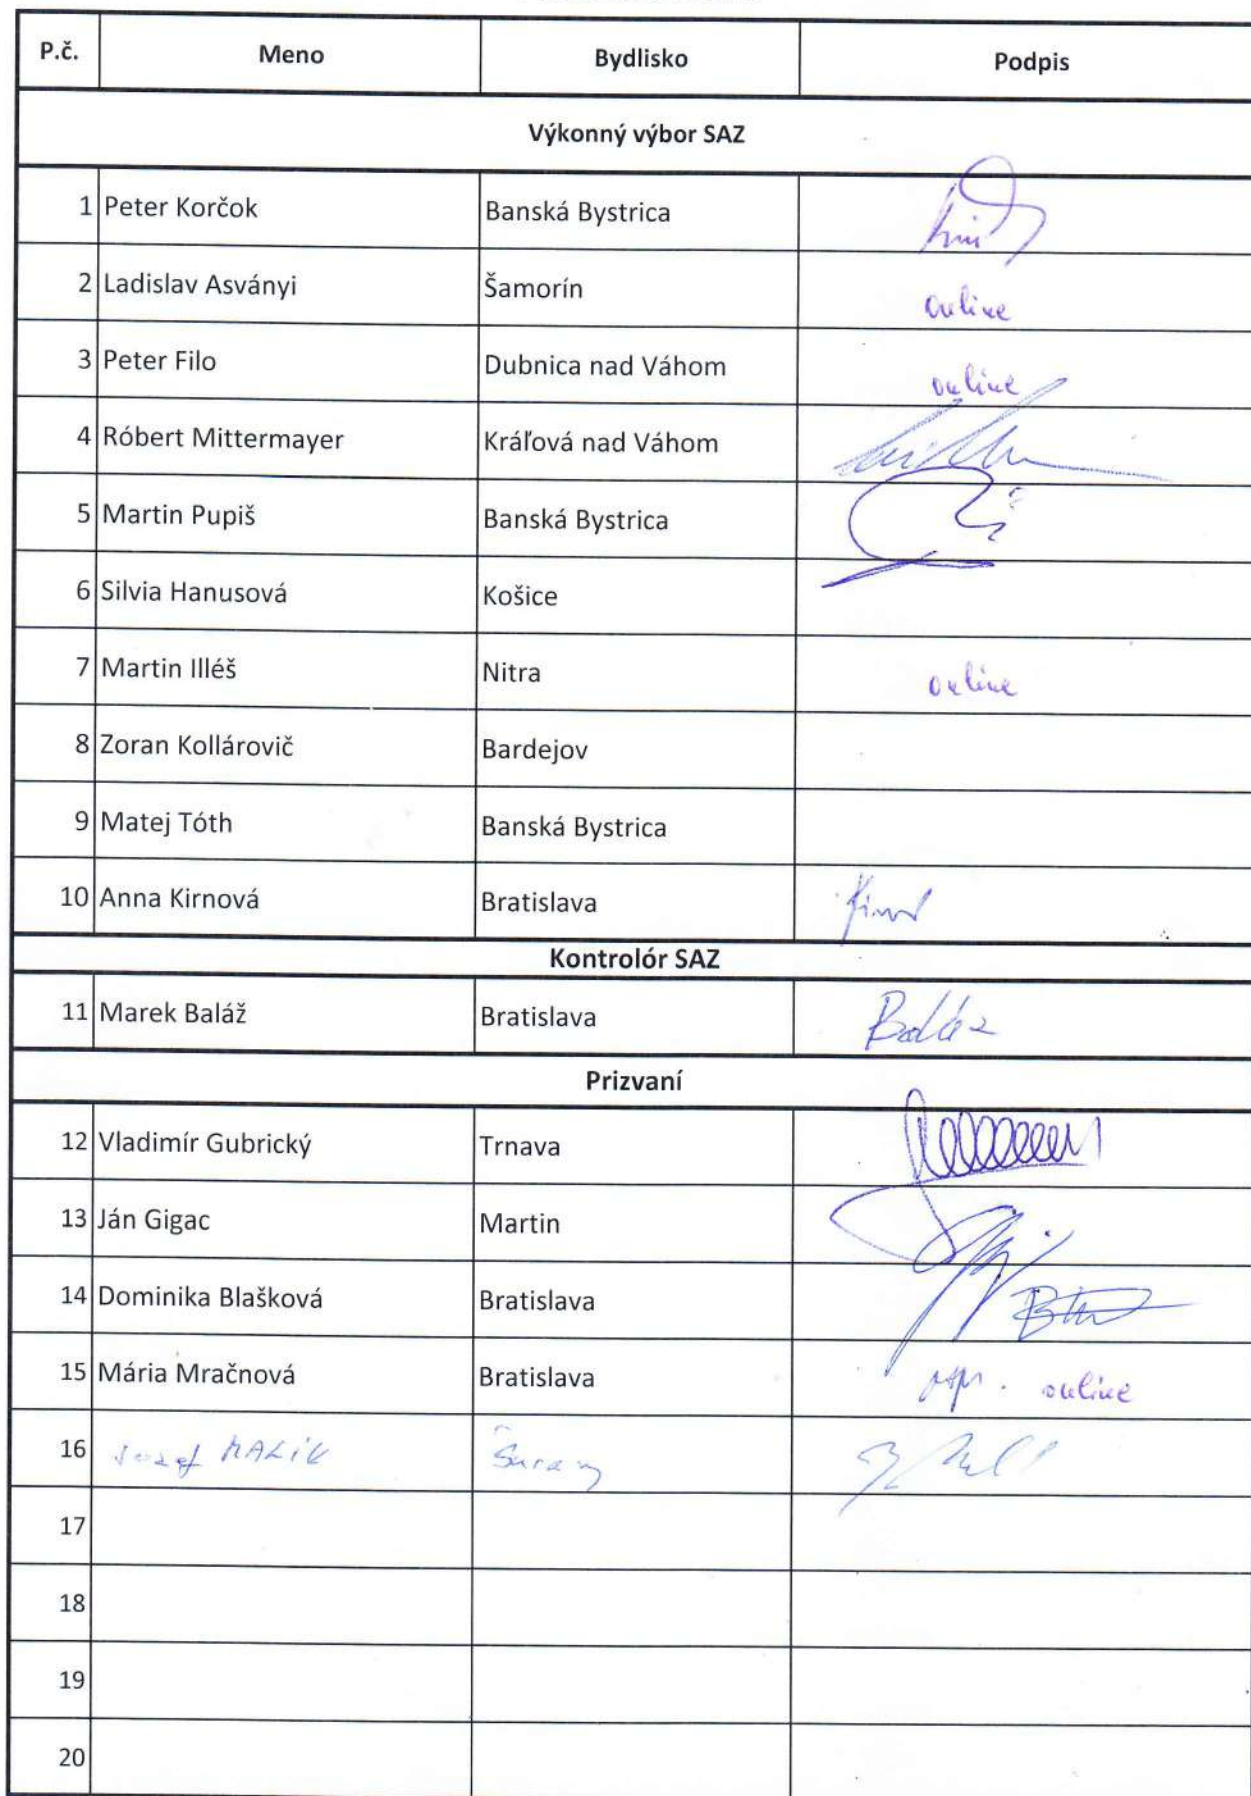 P.č. Meno Bydlisko Podpis
Výkonný výbor SAZ
1 Peter Korčok Banská Bystrica
2 Ladislav Asványi Šamorín online
3 Peter Filo Dubnica nad Váhom online
4 Róbert Mittermayer Kráľová nad Váhom
5 Martin Pupiš Banská Bystrica
6 Silvia Hanusová Košice
7 Martin Illéš Nitra online
8 Zoran Kollárovič Bardejov
9 Matej Tóth Banská Bystrica
10 Anna Kirnová Bratislava
Kontrolór SAZ
11 Marek Baláž Bratislava Baláz
Prizvaní
12 Vladimír Gubrický Trnava
13 Ján Gigac Martin
14 Dominika Blašková Bratislava
15 Mária Mračnová Bratislava online
16 Jozef MALÍK Šurany
17
18
19
20